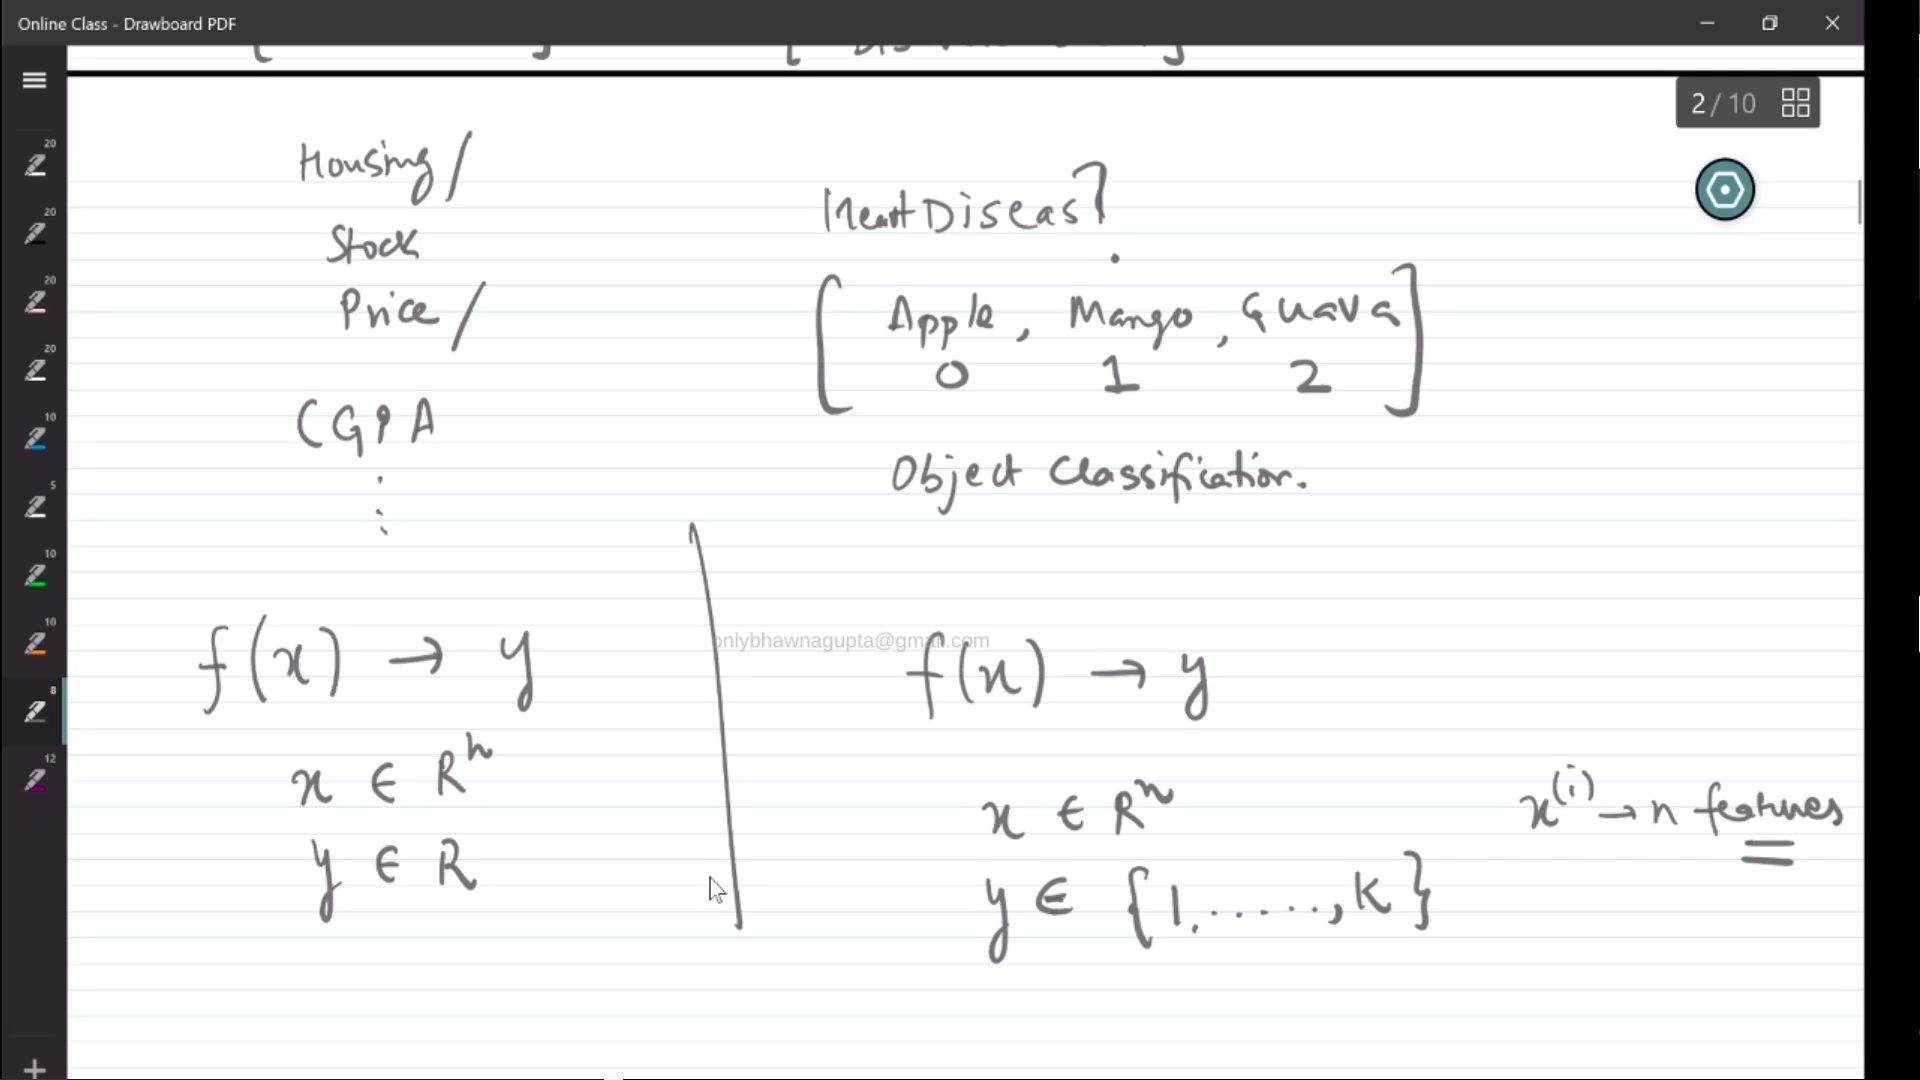 Online Class - Drawboard PDF
2 / 10
20
20
20
20
10
5
10
10
8
12
Housing /
Stock
Price /
CGPA
Heart Diseas ?
[ Apple, Mango, Guava ]
0 1 2
Object Classification.
f(x) → y
x ∈ Rⁿ
y ∈ R
onlybhawnagupta@gmail.com
f(x) → y
x ∈ Rⁿ
y ∈ {1, ....., K}
x⁽ⁱ⁾ → n features